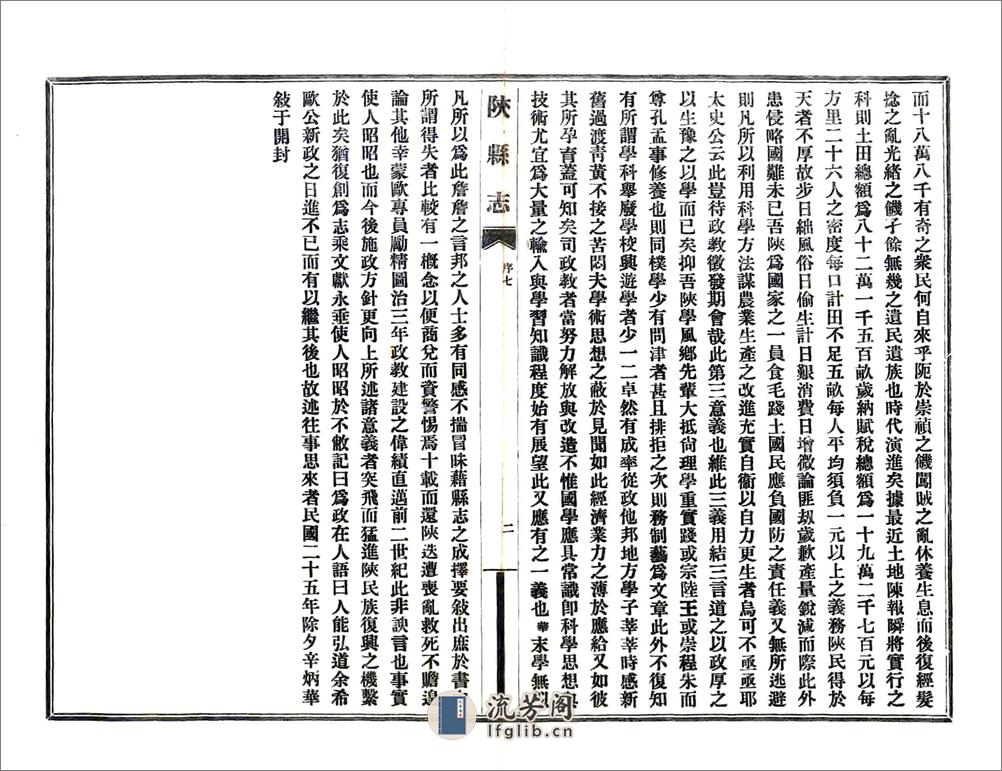 而十八萬八千有奇之衆民何自來乎阨於崇禎之饑闖賊之亂休養生息而後復經髮
捻之亂光緒之饑孑餘無幾之遺民遺族也時代演進矣據最近土地陳報瞬將實行之
科則土田總額爲八十二萬一千五百畝歲納賦稅總額爲一十九萬二千七百元以每
方里二十六人之密度每口計田不足五畝每人平均須負一元以上之義務陝民得於
天者不厚故步日絀風俗日偷生計日艱消費日增微論匪刼歲歉產量銳減而際此外
患侵略國難未已吾陝爲國家之一員食毛踐土國民應負國防之責任義又無所逃避
則凡所以利用科學方法謀農業生產之改進充實自衞以自力更生者烏可不亟亟耶
太史公云此豈待政教徵發期會哉此第三意義也維此三義用結三言道之以政厚之
以生豫之以學而已矣抑吾陝學風鄉先輩大抵尙理學重實踐或宗陸王或崇程朱而
尊孔孟事修養也則同樸學少有問津者甚且排拒之次則務制藝爲文章此外不復知
有所謂學科舉廢學校興遊學者少一二卓然有成率從政他邦地方學子莘莘時感新
舊過渡靑黃不接之苦悶夫學術思想之蔽於見聞如此經濟業力之薄於應給又如彼
其所孕育蓋可知矣司政教者當努力解放與改造不惟國學應具常識卽科學思想與
技術尤宜爲大量之輸入與學習知識程度始有展望此又應有之一義也華末學無似
陝縣志
序七
二
凡所以爲此詹詹之言邦之人士多有同感不揣冒昧藉縣志之成擇要敍出庶於書中
所謂得失者比較有一概念以便商兌而資警惕焉十載而還陝迭遭喪亂救死不贍遑
論其他幸蒙歐專員勵精圖治三年政教建設之偉績直邁前二世紀此非諛言也事實
使人昭昭也而今後施政方針更向上所述諸意義者突飛而猛進陝民族復興之機繫
於此矣猶復創爲志乘文獻永垂使人昭昭於不敝記曰爲政在人語曰人能弘道余希
歐公新政之日進不已而有以繼其後也故述往事思來者民國二十五年除夕辛炳華
敍于開封
流芳阁
lfglib.cn